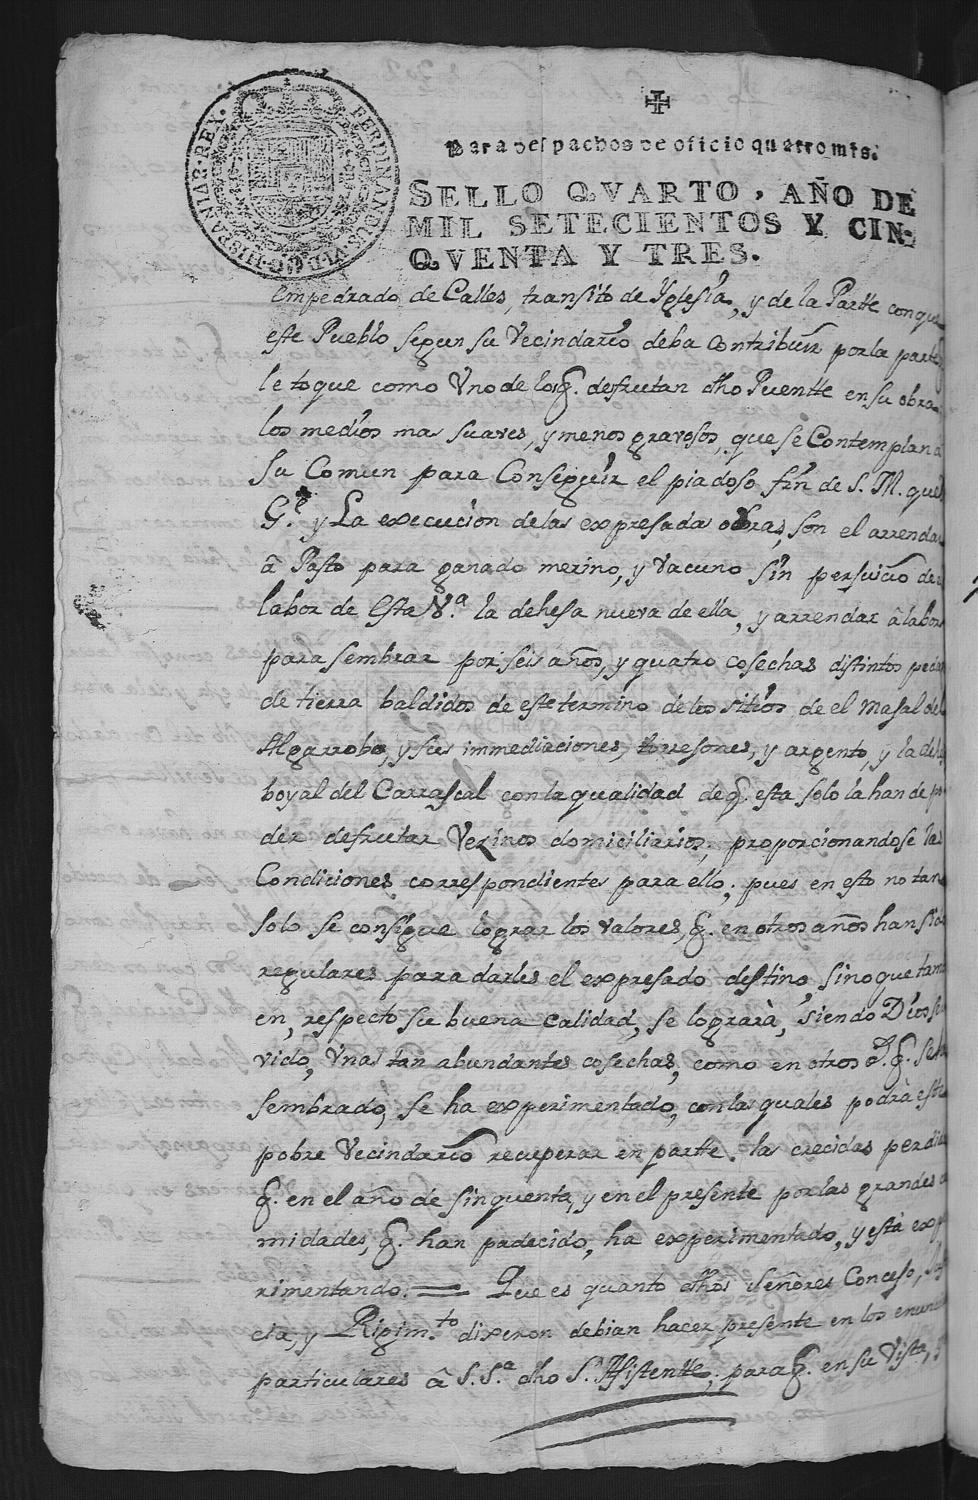 FERDINANDUS·VI·D·G·HISPANIAR·REX·
Para despachos de oficio quatro mrs.
SELLO QVARTO, AÑO DE
MIL SETECIENTOS Y CIN-
QVENTA Y TRES.
empedrado de Calles, transito de Yglesia, y de la Partte con que
este Pueblo segun su Vecindario deba contribuir por la parte
le toque como Vno de los q. desfrutan dho Puentte en su obra
los medios mas suaves, y menos gravosos, que se Contemplan a
su Comun para Conseguir el piadoso fin de S. M. que
G.e y La execucion de las expresadas obras, son el arrendar
â Pasto para ganado merino, y vacuno sin perjuicio de
labor de Esta V.a la dehesa nueva de ella, y arrendar â labor
para sembrar por seis años, y quatro cosechas distintos
de tierra baldidos de este termino de los sitios de el Masal del
Algarrobo, y sus immediaciones, torresones, y argento, y la
boyal del Carrascal con la qualidad de q. esta solo la han de po
der desfrutar Vezinos domiciliarios, proporcionandose las
Condiciones correspondientes para ello; pues en esto no tan
solo se consigue lograr los valores, q. en otros años han
regulares para darles el expresado destino sino que
en, respecto su buena calidad, se lograrà, siendo Dios
vido, Vnas tan abundantes cosechas, como en otros q. se
sembrado, se ha experimentado, con las quales podrà este
pobre Vecindario recuperar en partte las crecidas
q. en el año de sinquenta, y en el presente por las grandes
midades, q. han padecido, ha experimentado, y està
rimentando. = Que es quanto dhos Señores Consejo,
cia, y Rigim.to dixeron debian hacer presente en los
particulares â S. S.a dho S. Asistentte; para q. en su Vista,